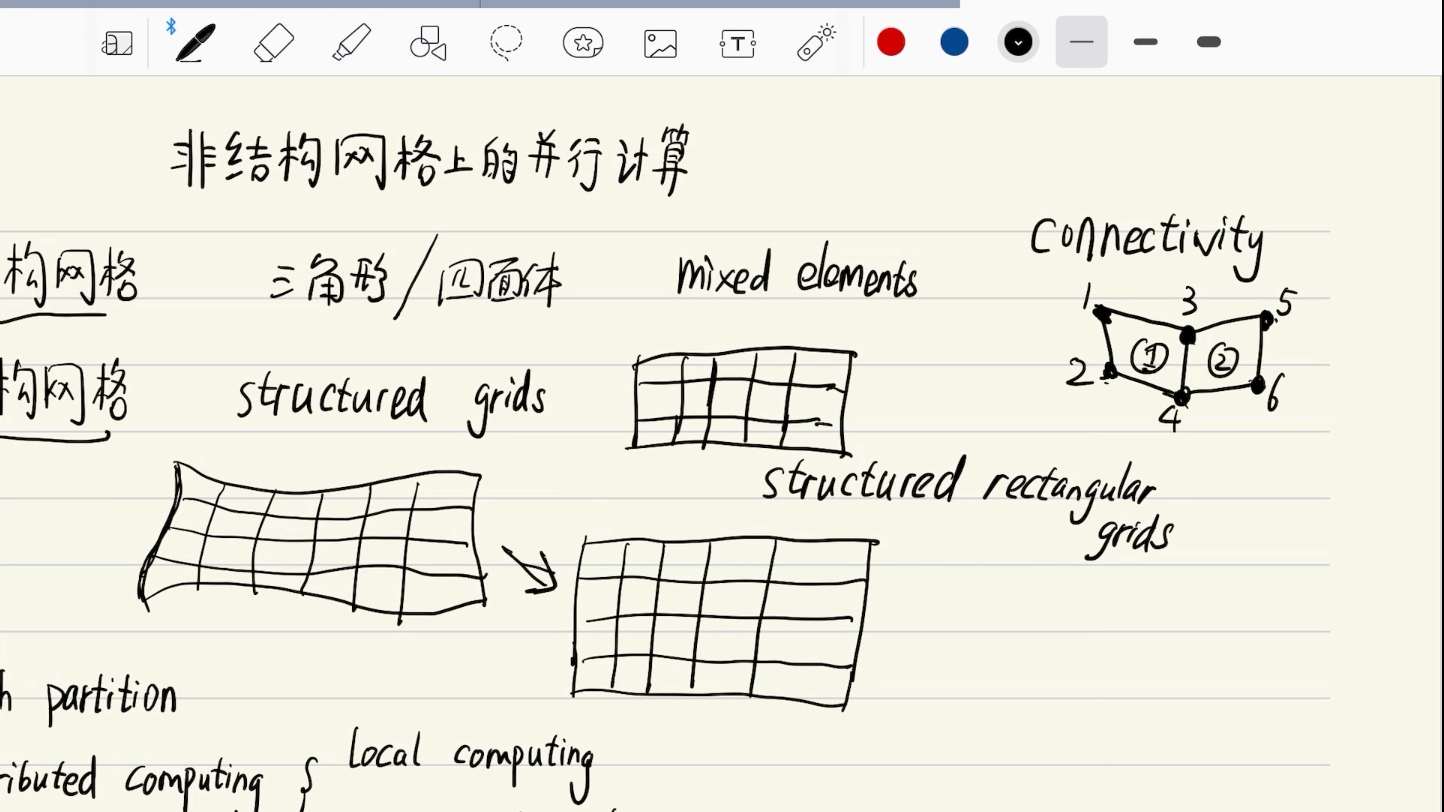 非结构网格上的并行计算
构网格 三角形/四面体 mixed elements
Connectivity
1 3 5
① ②
2 4 6
构网格 structured grids
structured rectangular
grids
h partition
ributed computing { local computing